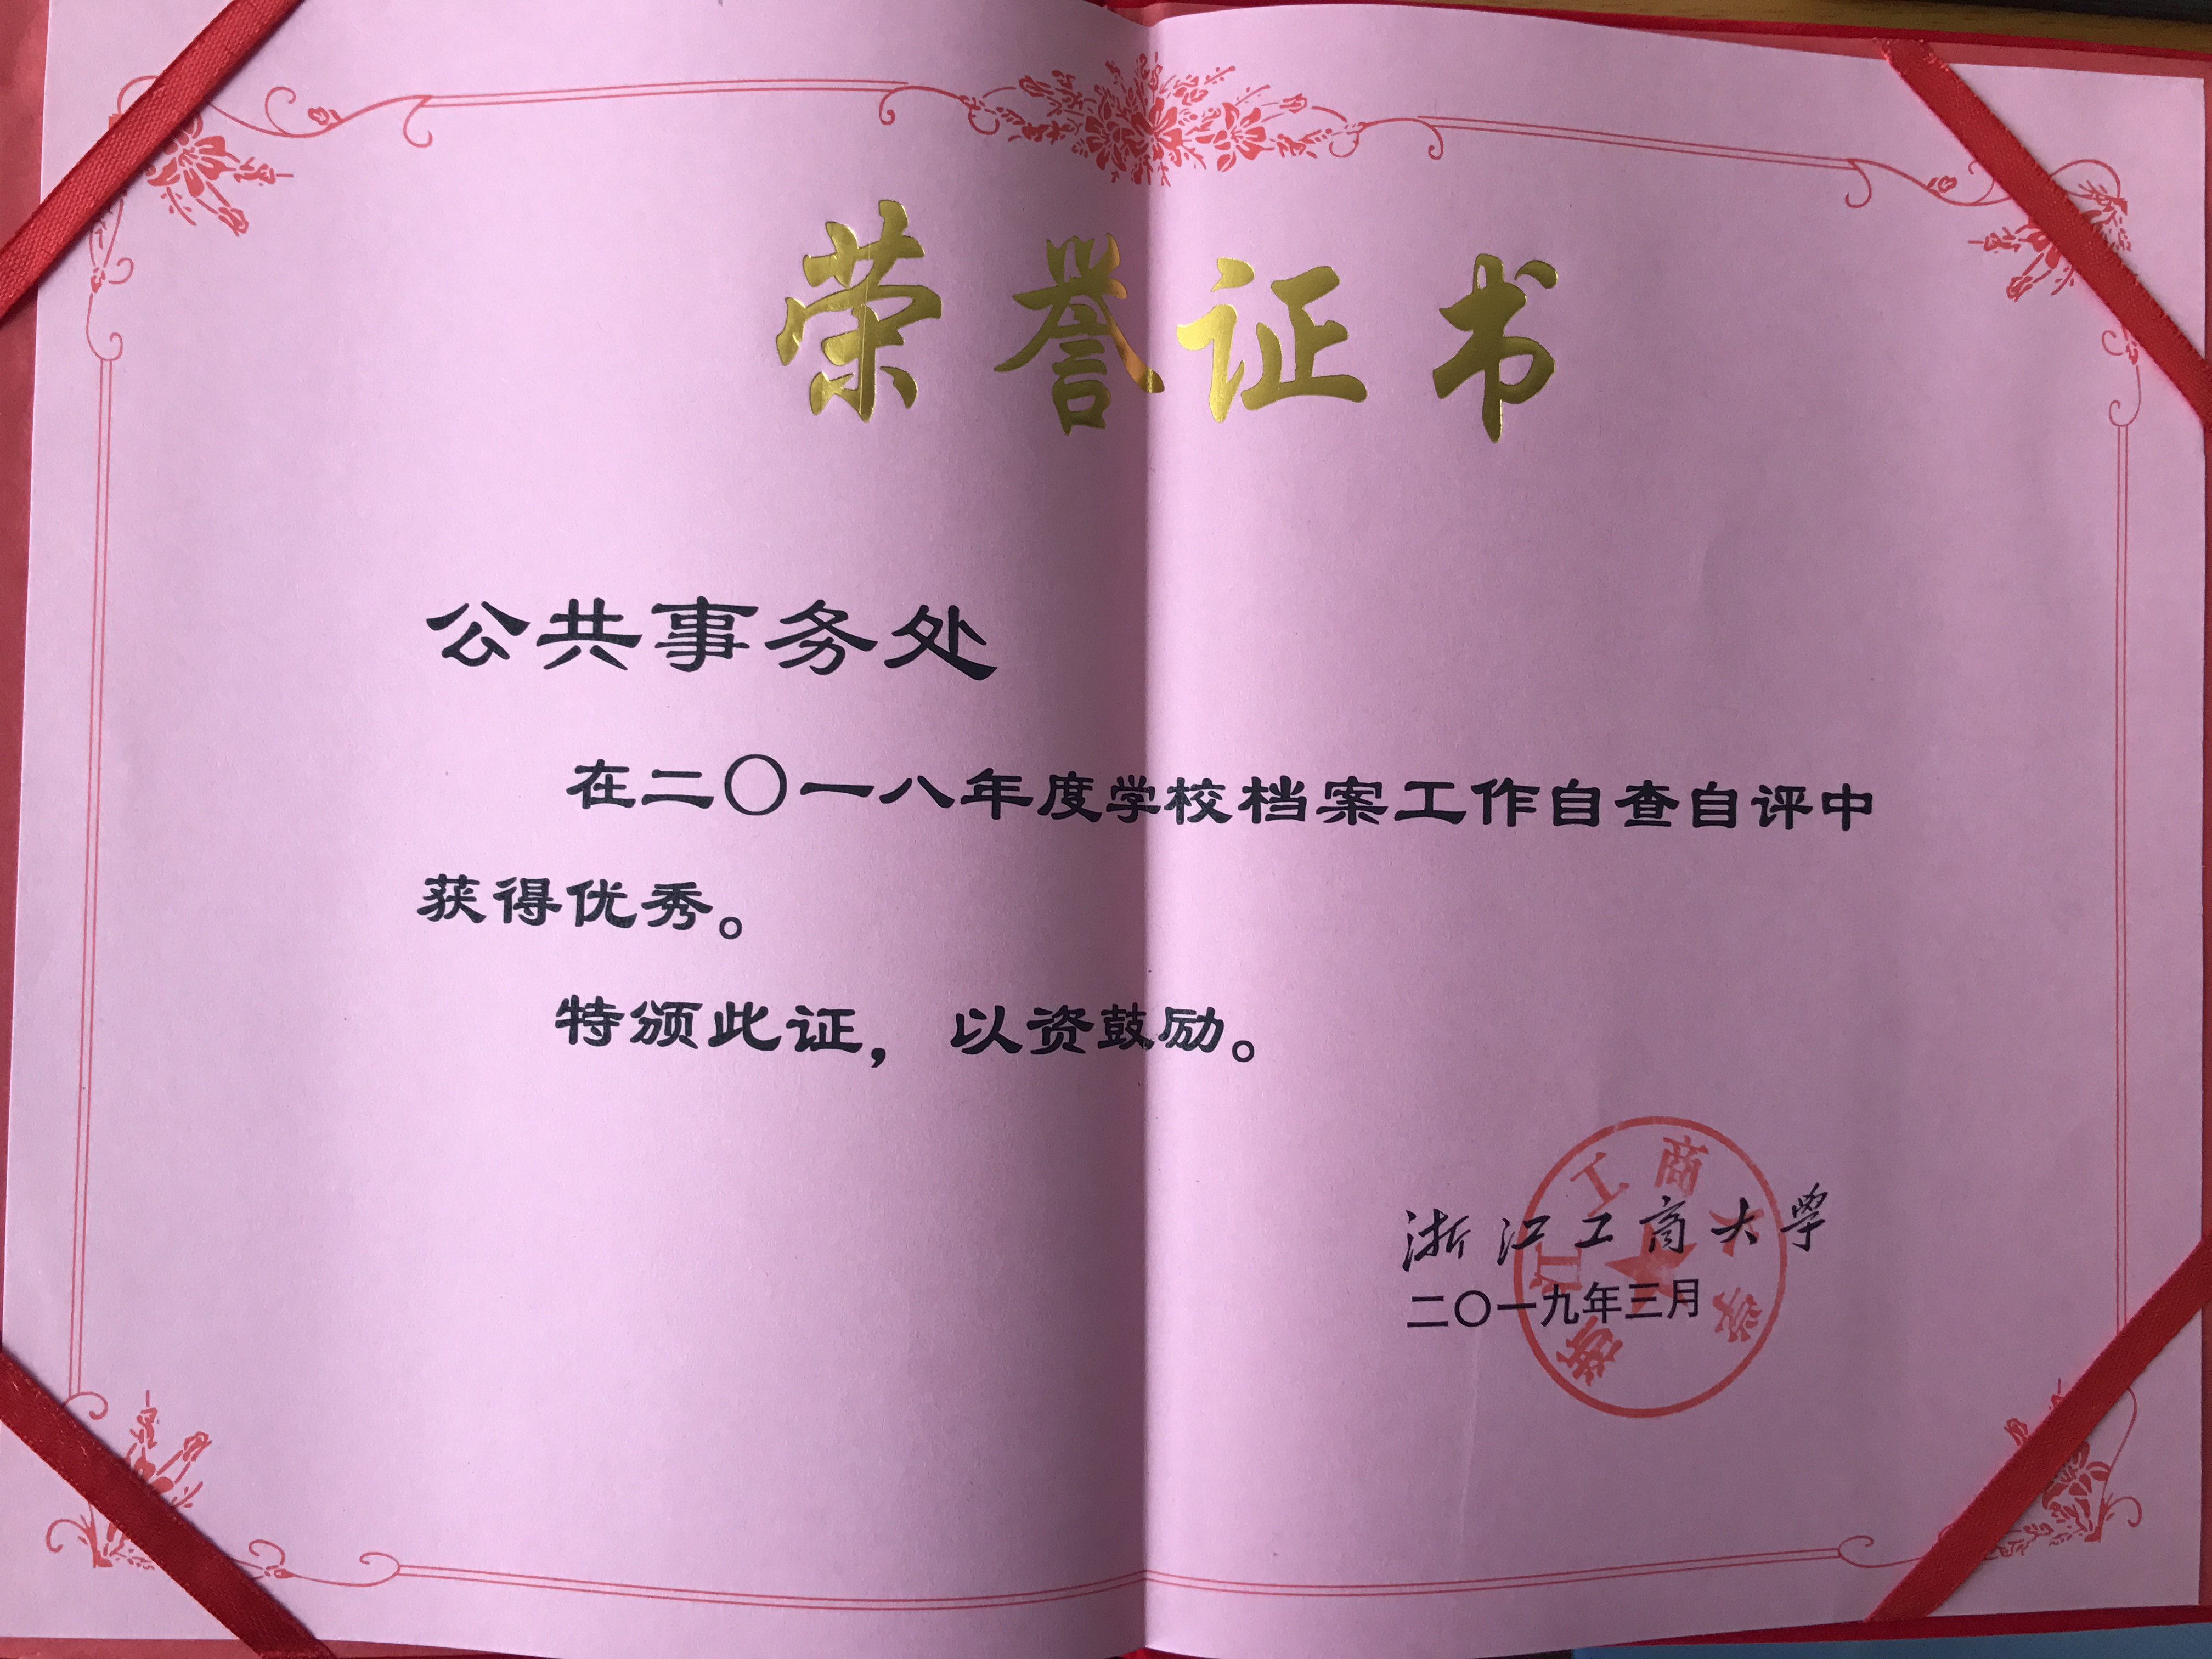 荣誉证书
公共事务处
在二〇一八年度学校档案工作自查自评中
获得优秀。
特颁此证，以资鼓励。
浙江工商大学
二〇一九年三月
浙江工商大学